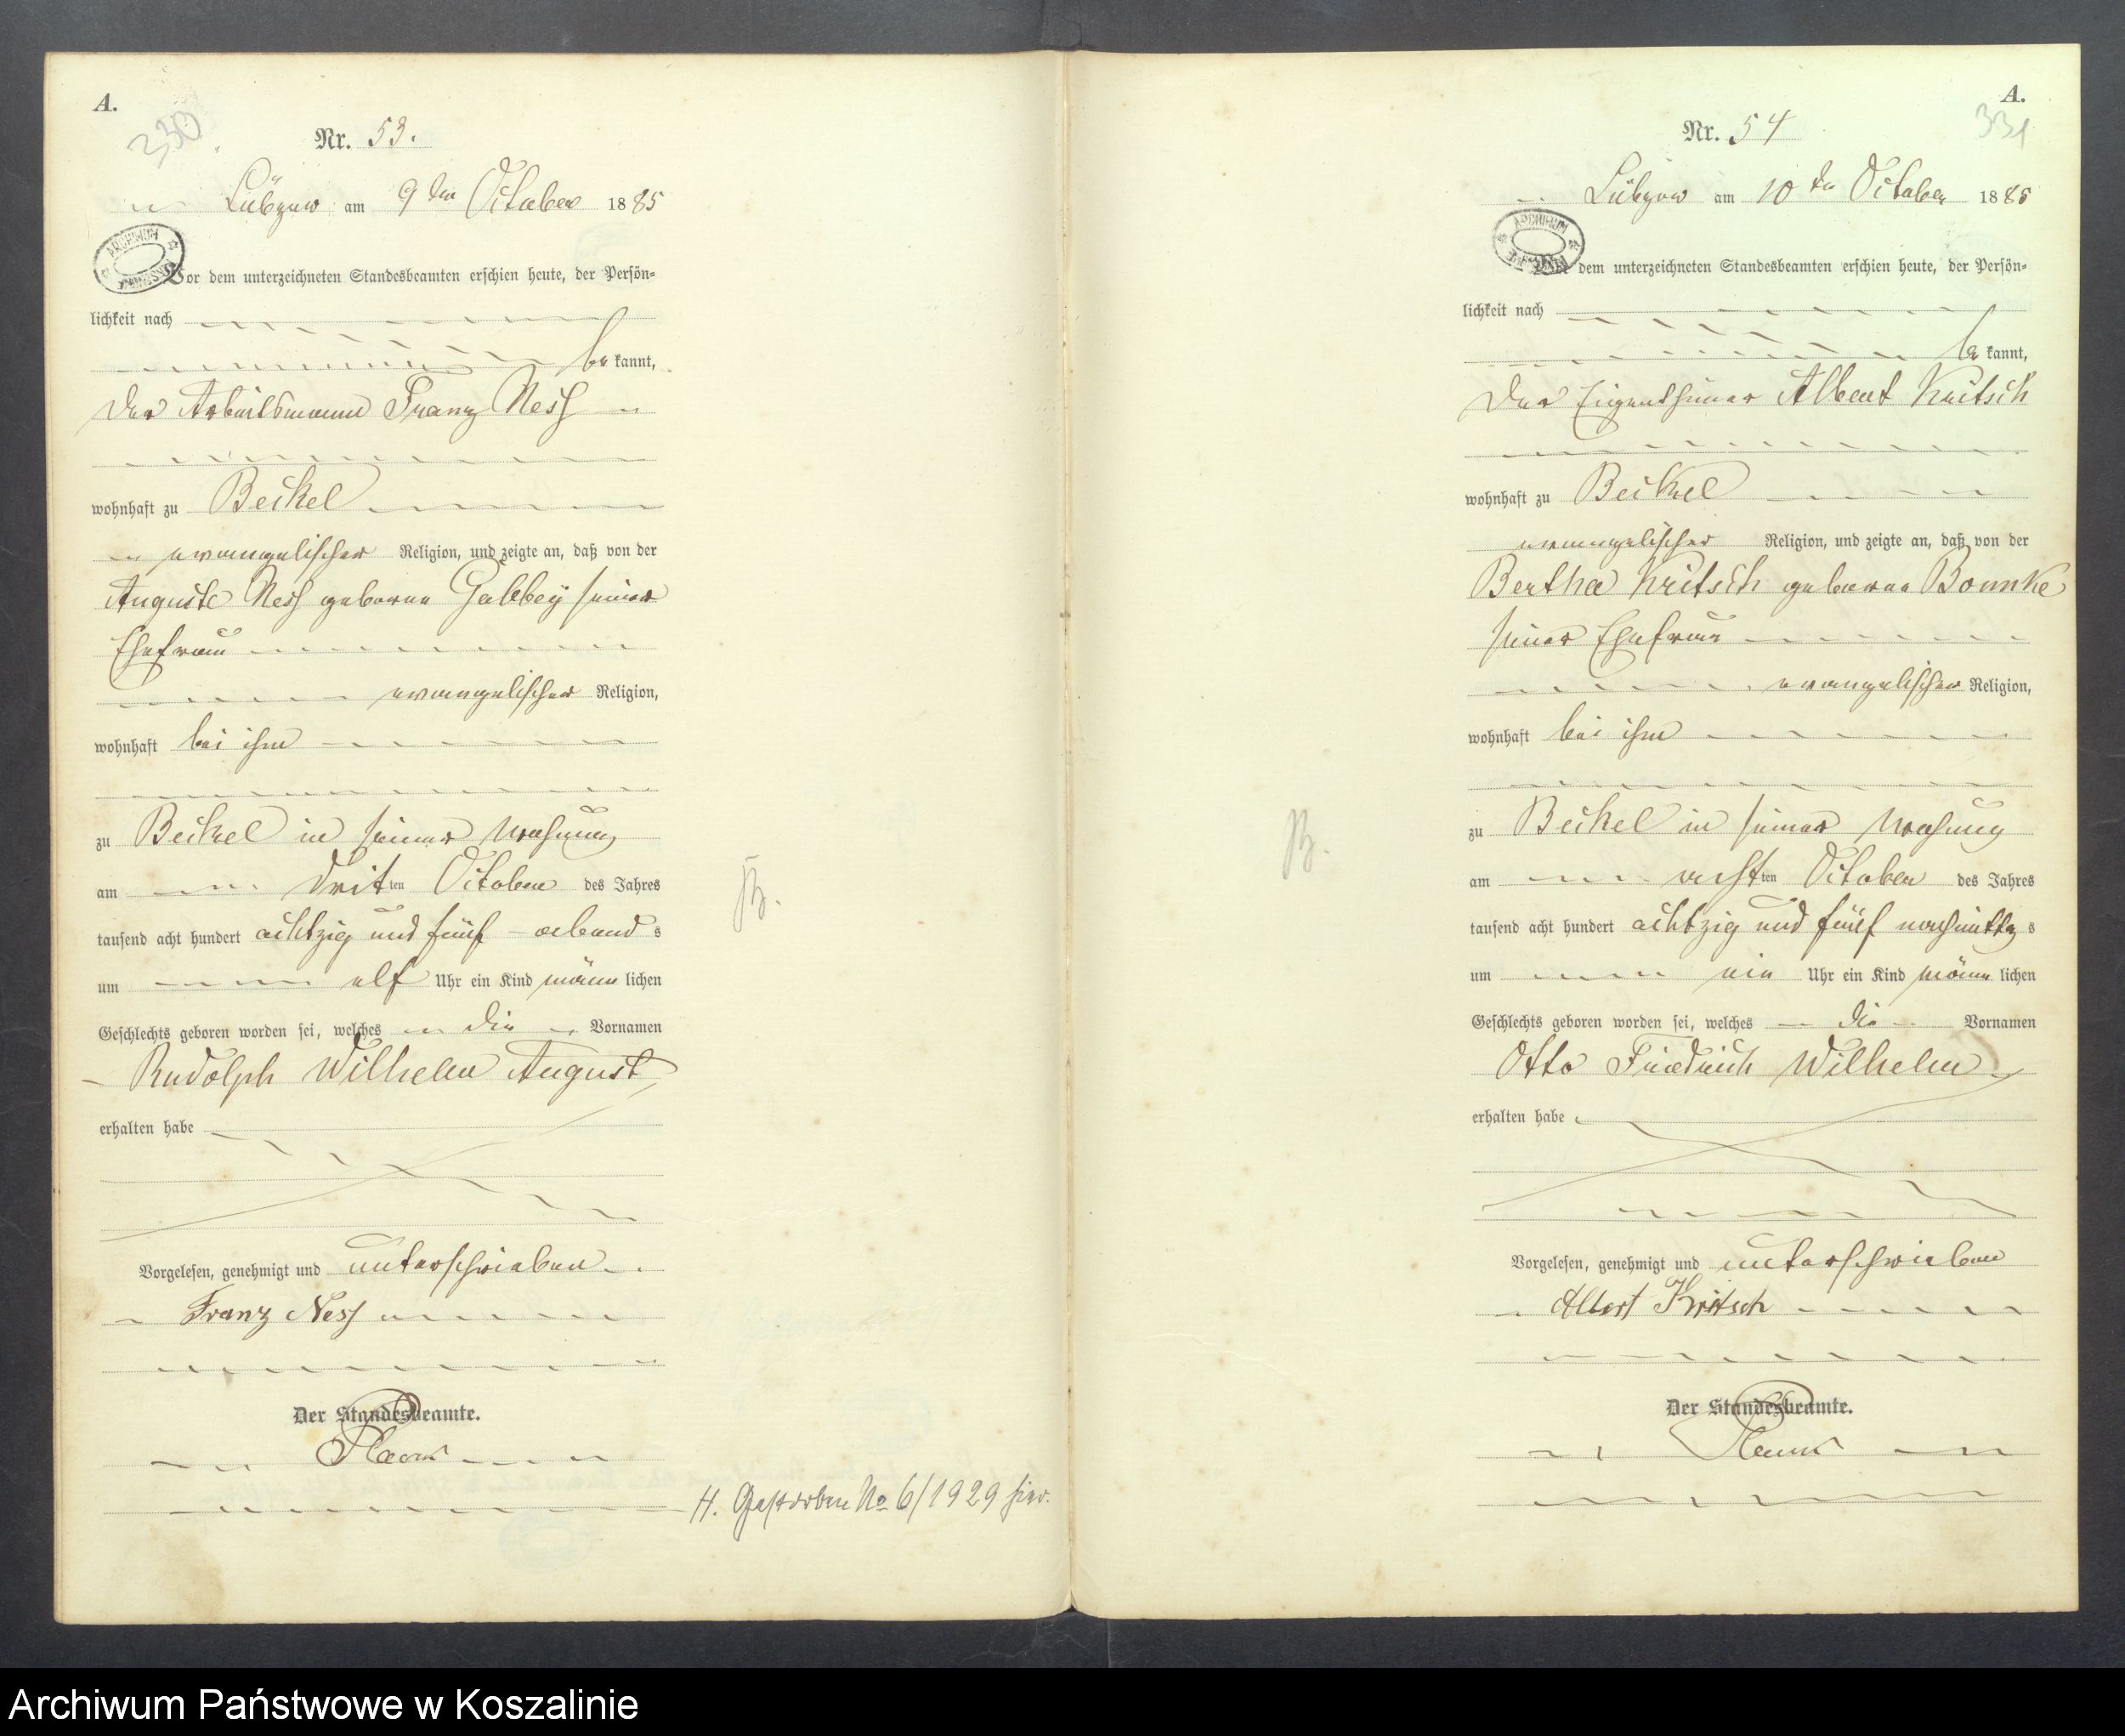 A.
330
Nr. 53.
Lübzow am 9ten October 1885
Vor dem unterzeichneten Standesbeamten erschien heute, der Persön=
lichkeit nach
be kannt,
der Arbeitsmann Franz Ness
wohnhaft zu Beckel
evangelischer Religion, und zeigte an, daß von der
Auguste Ness geborne Gabbey seiner
Ehefrau
evangelischer Religion,
wohnhaft bei ihm
zu Beckel in seiner Wohnung
am dritten October des Jahres
tausend acht hundert achtzig und fünf abends
um elf Uhr ein Kind männlichen
Geschlechts geboren worden sei, welches die Vornamen
Rudolph Wilhelm August
erhalten habe
Vorgelesen, genehmigt und unterschrieben
Franz Ness
Der Standesbeamte.
B.
H. Gestorben No 6/1929 hier.
A.
331
Nr. 54
Lübzow am 10ten October 1885
dem unterzeichneten Standesbeamten erschien heute, der Persön=
lichkeit nach
be kannt,
der Eigenthümer Albert Kritsch
wohnhaft zu Beckel
evangelischer Religion, und zeigte an, daß von der
Bertha Kritsch geborne Bonnke
seiner Ehefrau
evangelischer Religion,
wohnhaft bei ihm
zu Beckel in seiner Wohnung
am achtten October des Jahres
tausend acht hundert achtzig und fünf nachmittags
um ein Uhr ein Kind männlichen
Geschlechts geboren worden sei, welches die Vornamen
Otto Friedrich Wilhelm
erhalten habe
Vorgelesen, genehmigt und unterschrieben
Albert Kritsch
Der Standesbeamte.
B.
Archiwum Państwowe w Koszalinie